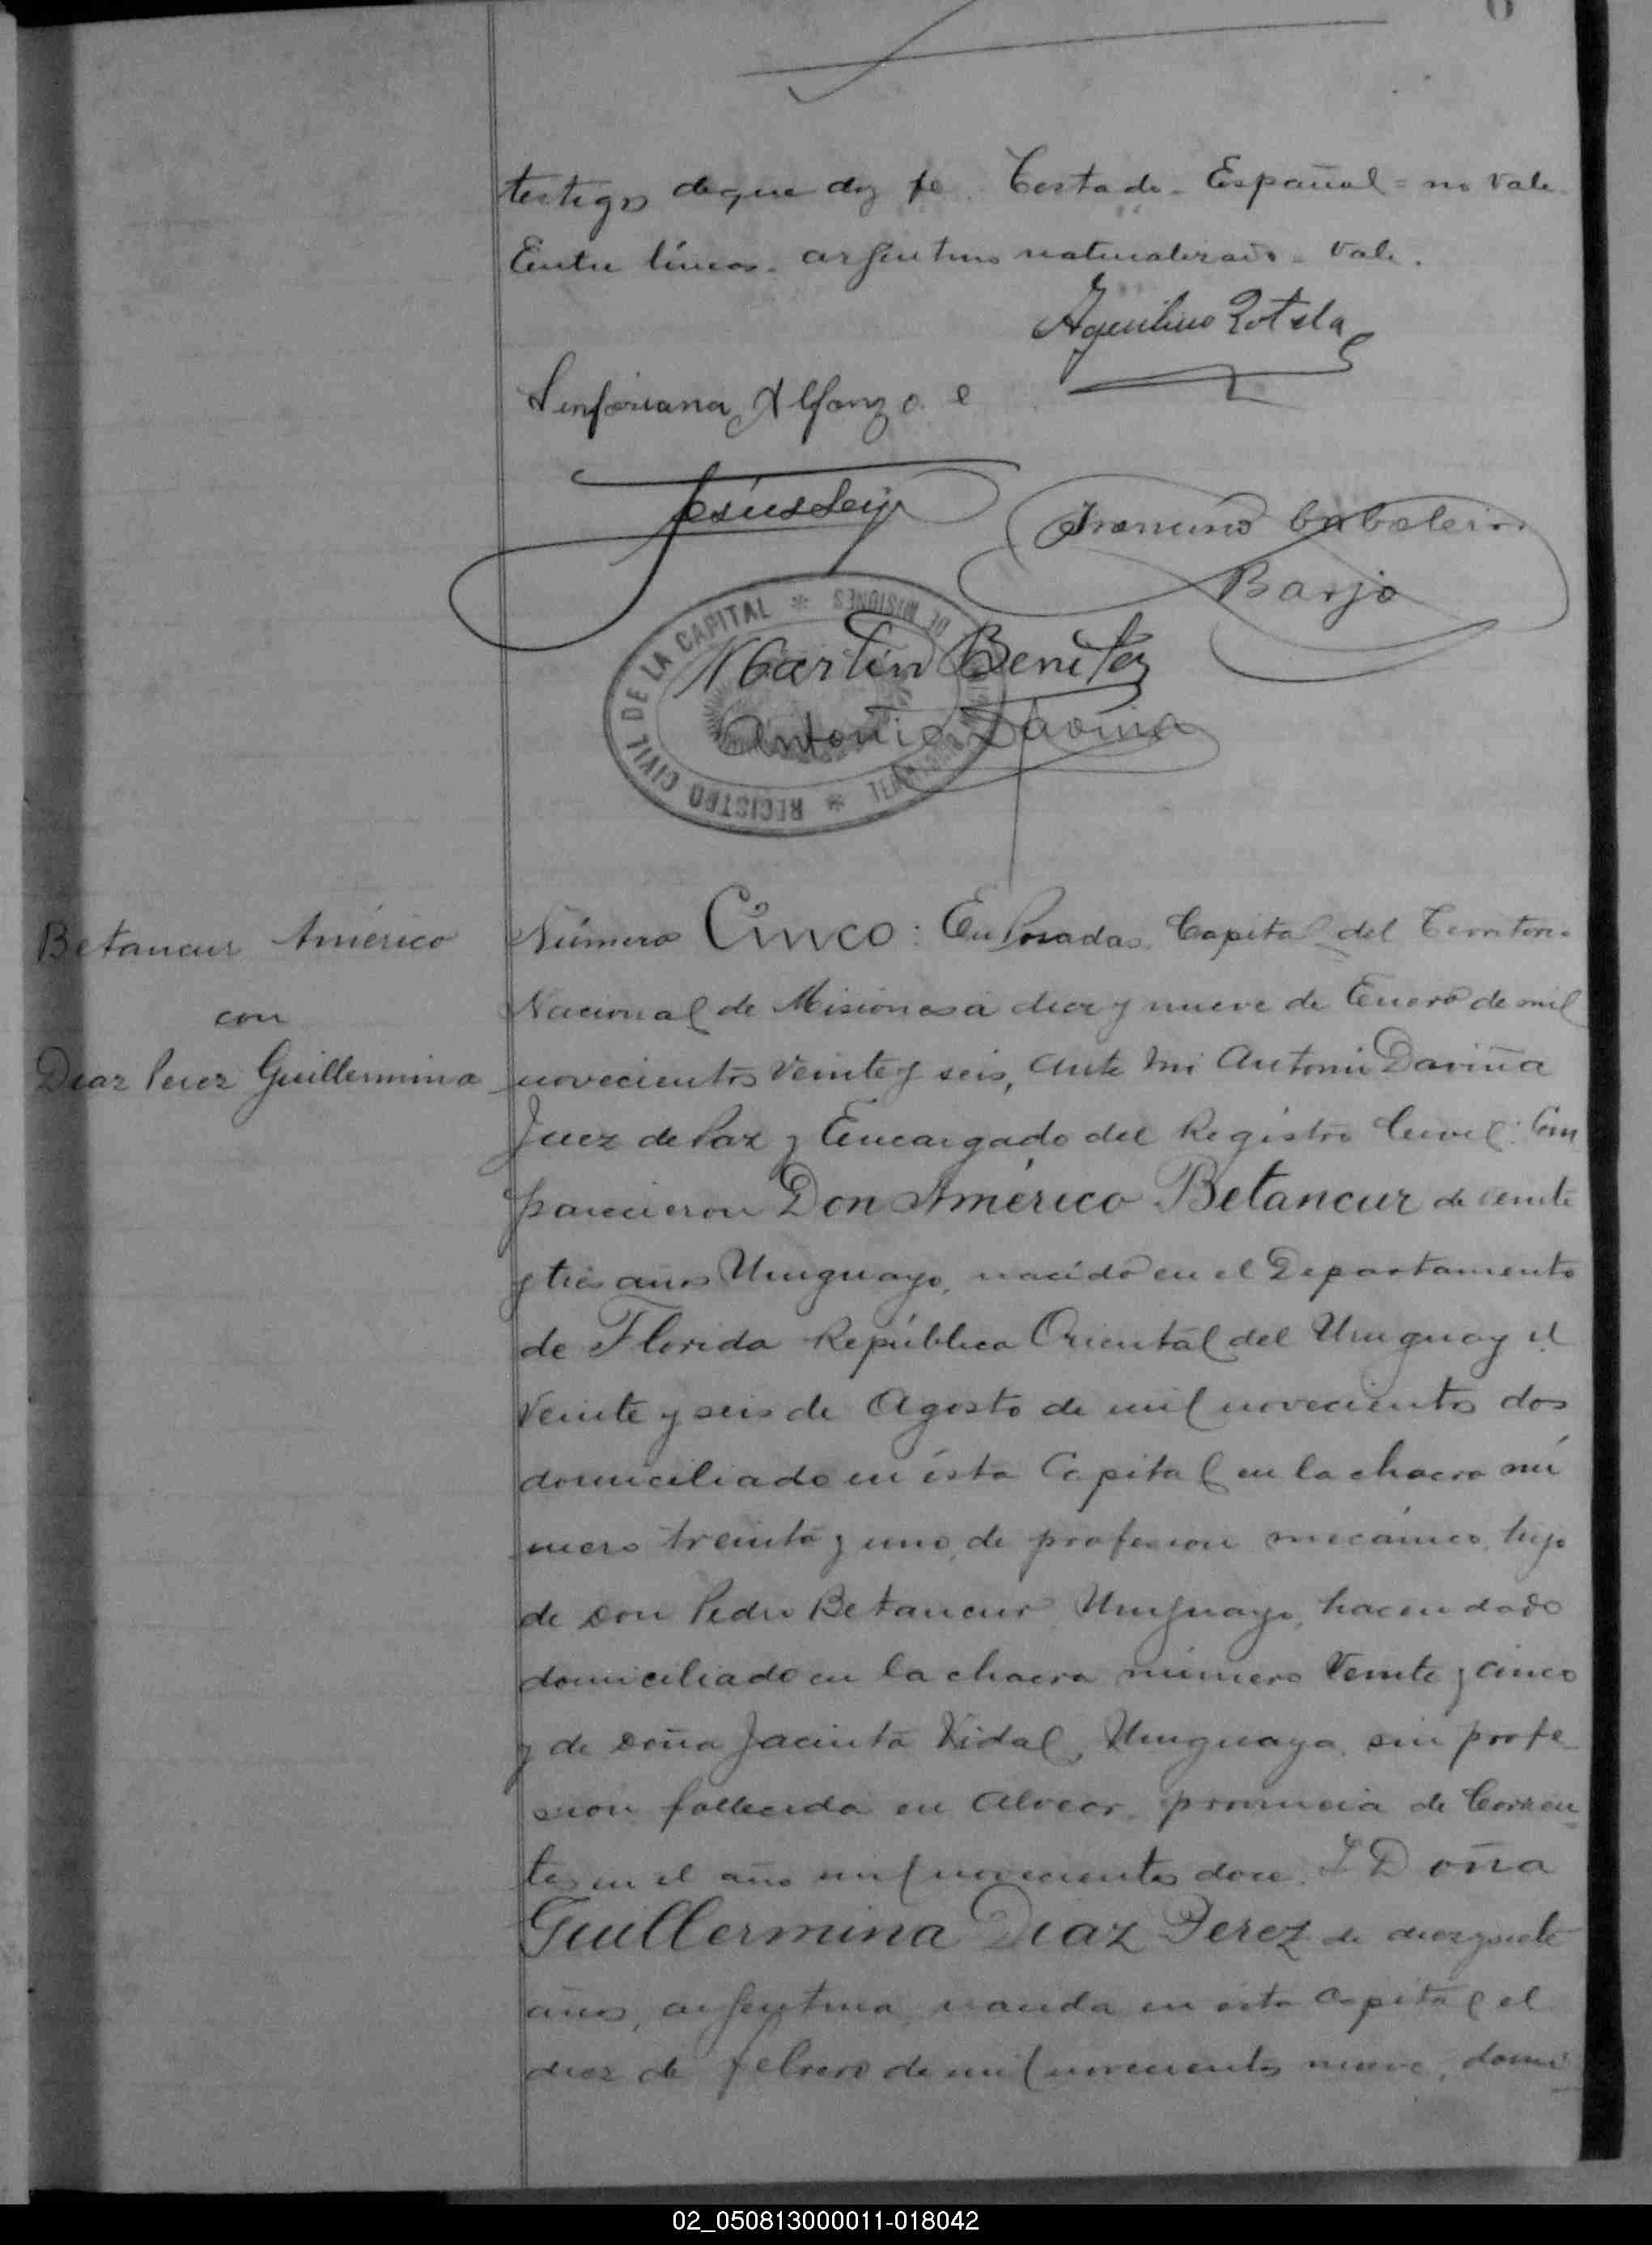 6
testigos de que doy fe. Testado - Español = no vale.
Entre líneas - argentino naturalizado - vale.
Sinforiana Alfonzo
Martin Benitez
Antonio Daviña
REGISTRO CIVIL DE LA CAPITAL * DE MISIONES *
Betancur Américo
con
Diaz Perez Guillermina
Número Cinco: En Posadas Capital del Territorio
Nacional de Misiones a diez y nueve de Enero de mil
novecientos veinte y seis, ante mi Antonio Daviña
Juez de Paz y Encargado del Registro Civil: Com
parecieron Don Américo Betancur de veinte
y tres años Uruguayo, nacido en el Departamento
de Florida República Oriental del Uruguay el
veinte y seis de Agosto de mil novecientos dos
domiciliado en ésta Capital en la chacra nú
mero treinta y uno, de profesion mecánico, hijo
de Don Pedro Betancur Uruguayo, hacendado
domiciliado en la chacra número veinte y cinco
y de Doña Jacinta Vidal, Uruguaya, sin profe
sion fallecida en Alvear, provincia de Corrien
tes en el año mil novecientos doce. Y Doña
Guillermina Diaz Perez de diez y siete
años, argentina, nacida en esta Capital el
diez de febrero de mil novecientos nueve, domi
02_050813000011-018042